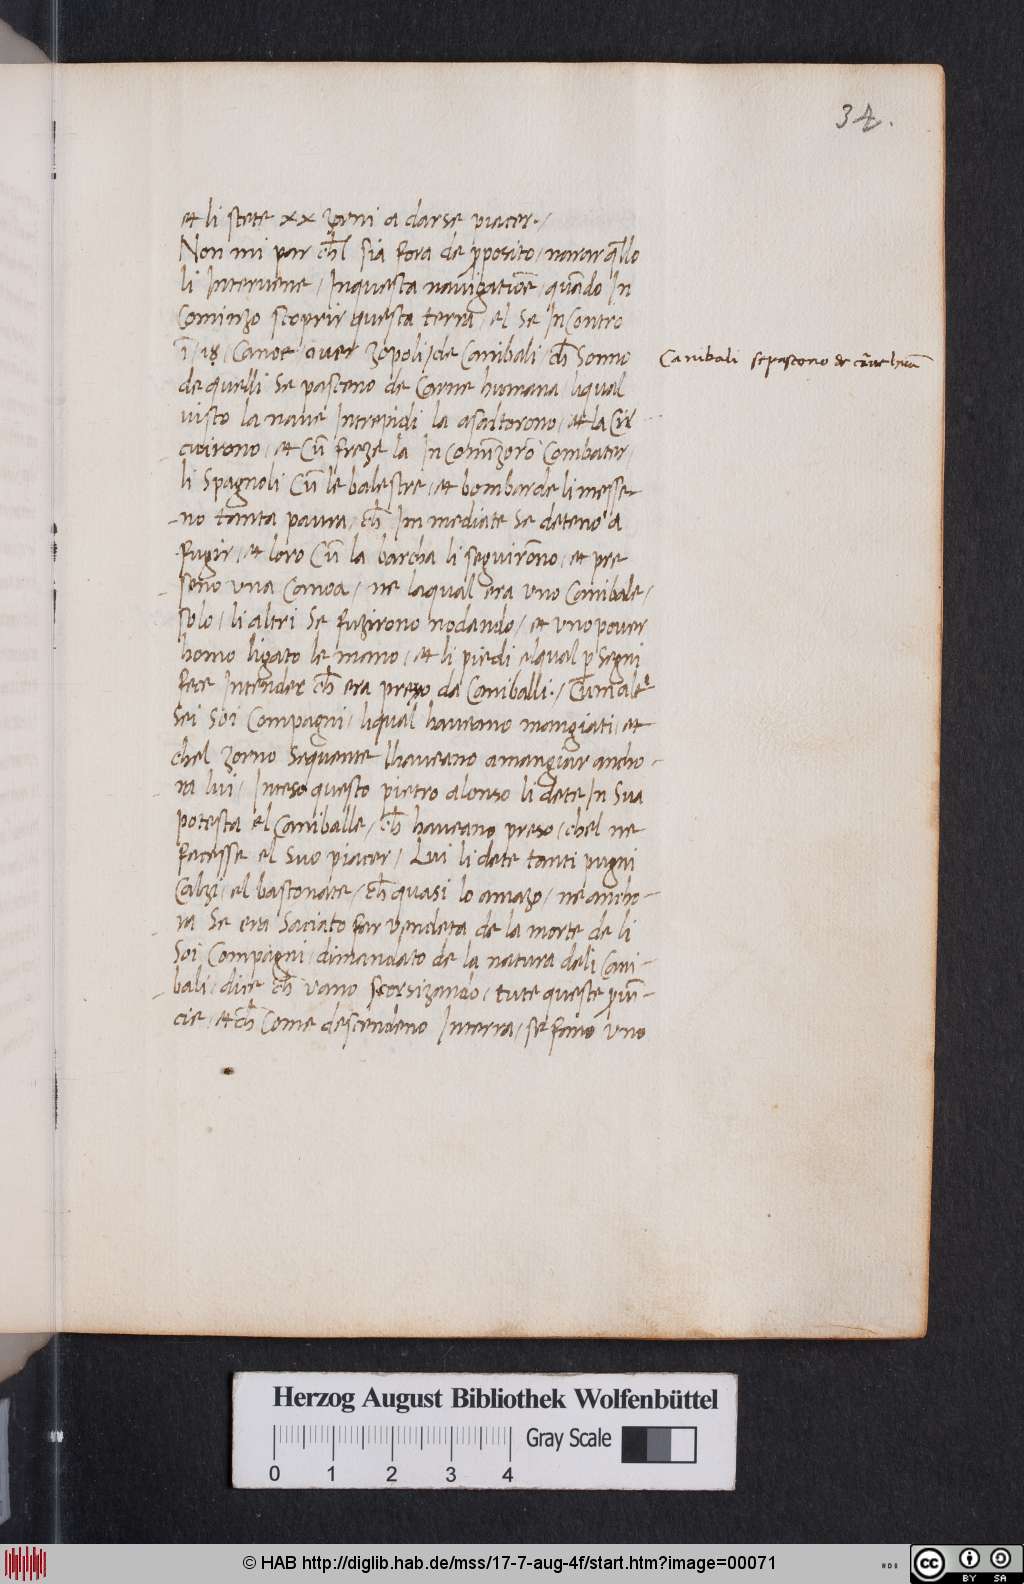 34.
et li stete xx zorni a darse piacer./
Non mi par ch̅l sia fora de ꝓposito, narar q̅llo
li Intervene, Inquesta navigatio̅e, qua̅do In
Cominzo scoprir questa terra, el se InContro
i̅, 18, Canoe, over zopoli, de Canibali, ch̅ Sonno
de quelli se pasceno de Carne humana, liqual
visto la nave Intrepidi la asaltorono, et la Cir
cuirono, et Cu̅ freze la InComi̅zoro̅ Combater,
li Spagnoli Cu̅ le balestre, et bombarde li messe-
no tanta paura, ch̅ Immediate se deteno a
fugir, et loro Cu̅ la barcha li seguiro̅no, et pre-
seno una Canoa, ne laqual era uno Canibale,
solo, li altri se fuzirono nodando, et uno pover
homo ligato le mano, et li piedi elqual ꝑ segni
fece Intender ch̅ era preso da Caniballi., Cu̅ male
sei soi Compagni, liqual haveano mangiati, et
chel zorno sequente lhaveano amangiar ancho-
ra lui, Inteso questo pietro alonso li dete In sua
potesta el Caniballe, ch̅ haveano preso, chel ne
facesse el suo piacer, Lui li dete tanti pugni
Calzi, el bastonate, ch̅ quasi lo amazo, ne ancho-
ra se era saciato far vendeta de la morte de li
soi Compagni, dimandato de la natura deli Cani-
bali, dice ch̅ vano scorsizando, tute queste ꝓvi̅-
cie, et ch̅ Come descendeno Interra, se fano uno
Canibali se pascono de carne
Herzog August Bibliothek Wolfenbüttel
0 1 2 3 4
Gray Scale
© HAB http://diglib.hab.de/mss/17-7-aug-4f/start.htm?image=00071
cc BY SA